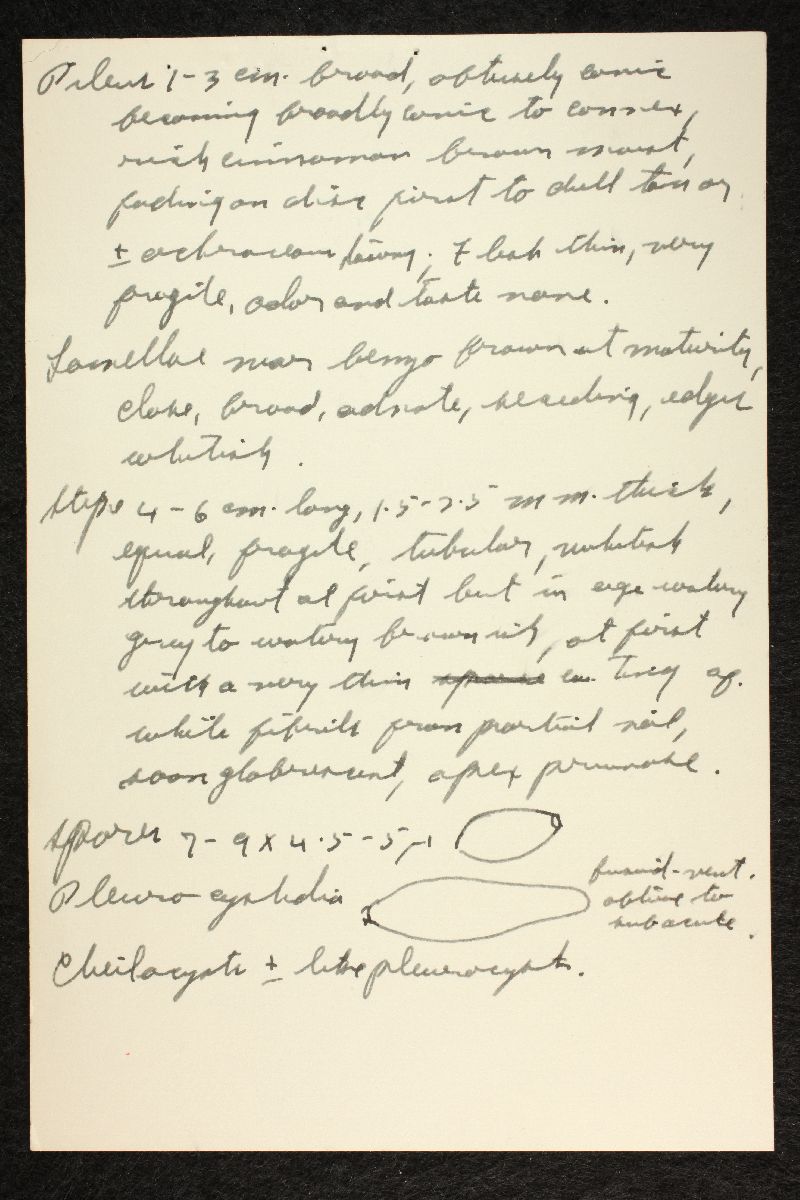 Pileus 1-3 cm. broad, obtusely conic
becoming broadly conic to convex,
rich cinnamon brown moist,
fading on disc first to dull tan or
± ochraceous tawny; flesh thin, very
fragile, odor and taste none.
Lamellae near benzo brown at maturity,
close, broad, adnate, seceding, edges
whitish.
Stipe 4-6 cm. long, 1.5-2.5 mm. thick,
equal, fragile, tubular, whitish
throughout at first but in age watery
grey to watery brownish, at first
with a very thin coating of
white fibrils from partial veil,
soon glabrescent, apex pruinose.
Spores 7-9 x 4.5-5
Pleurocystidia
fusoid-vent.
obtuse to
subacute.
Cheilocysts ± like pleurocysts.